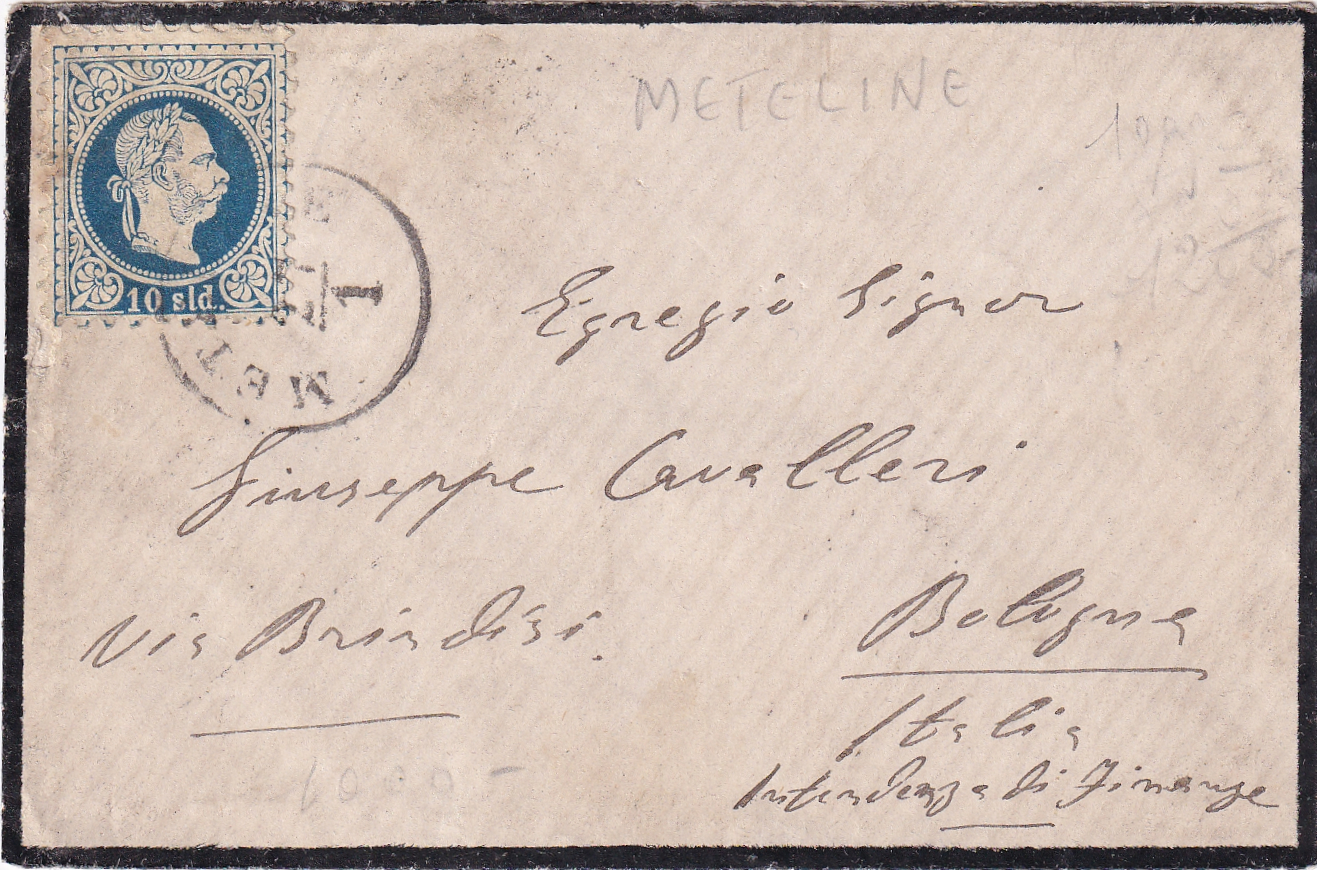 METELINE
10 sld.
MET
I
Egregio Signor
Giuseppe Cavalleri
Via Brindisi.
Bologna
Italia
Intendenza di Finanze
1000-